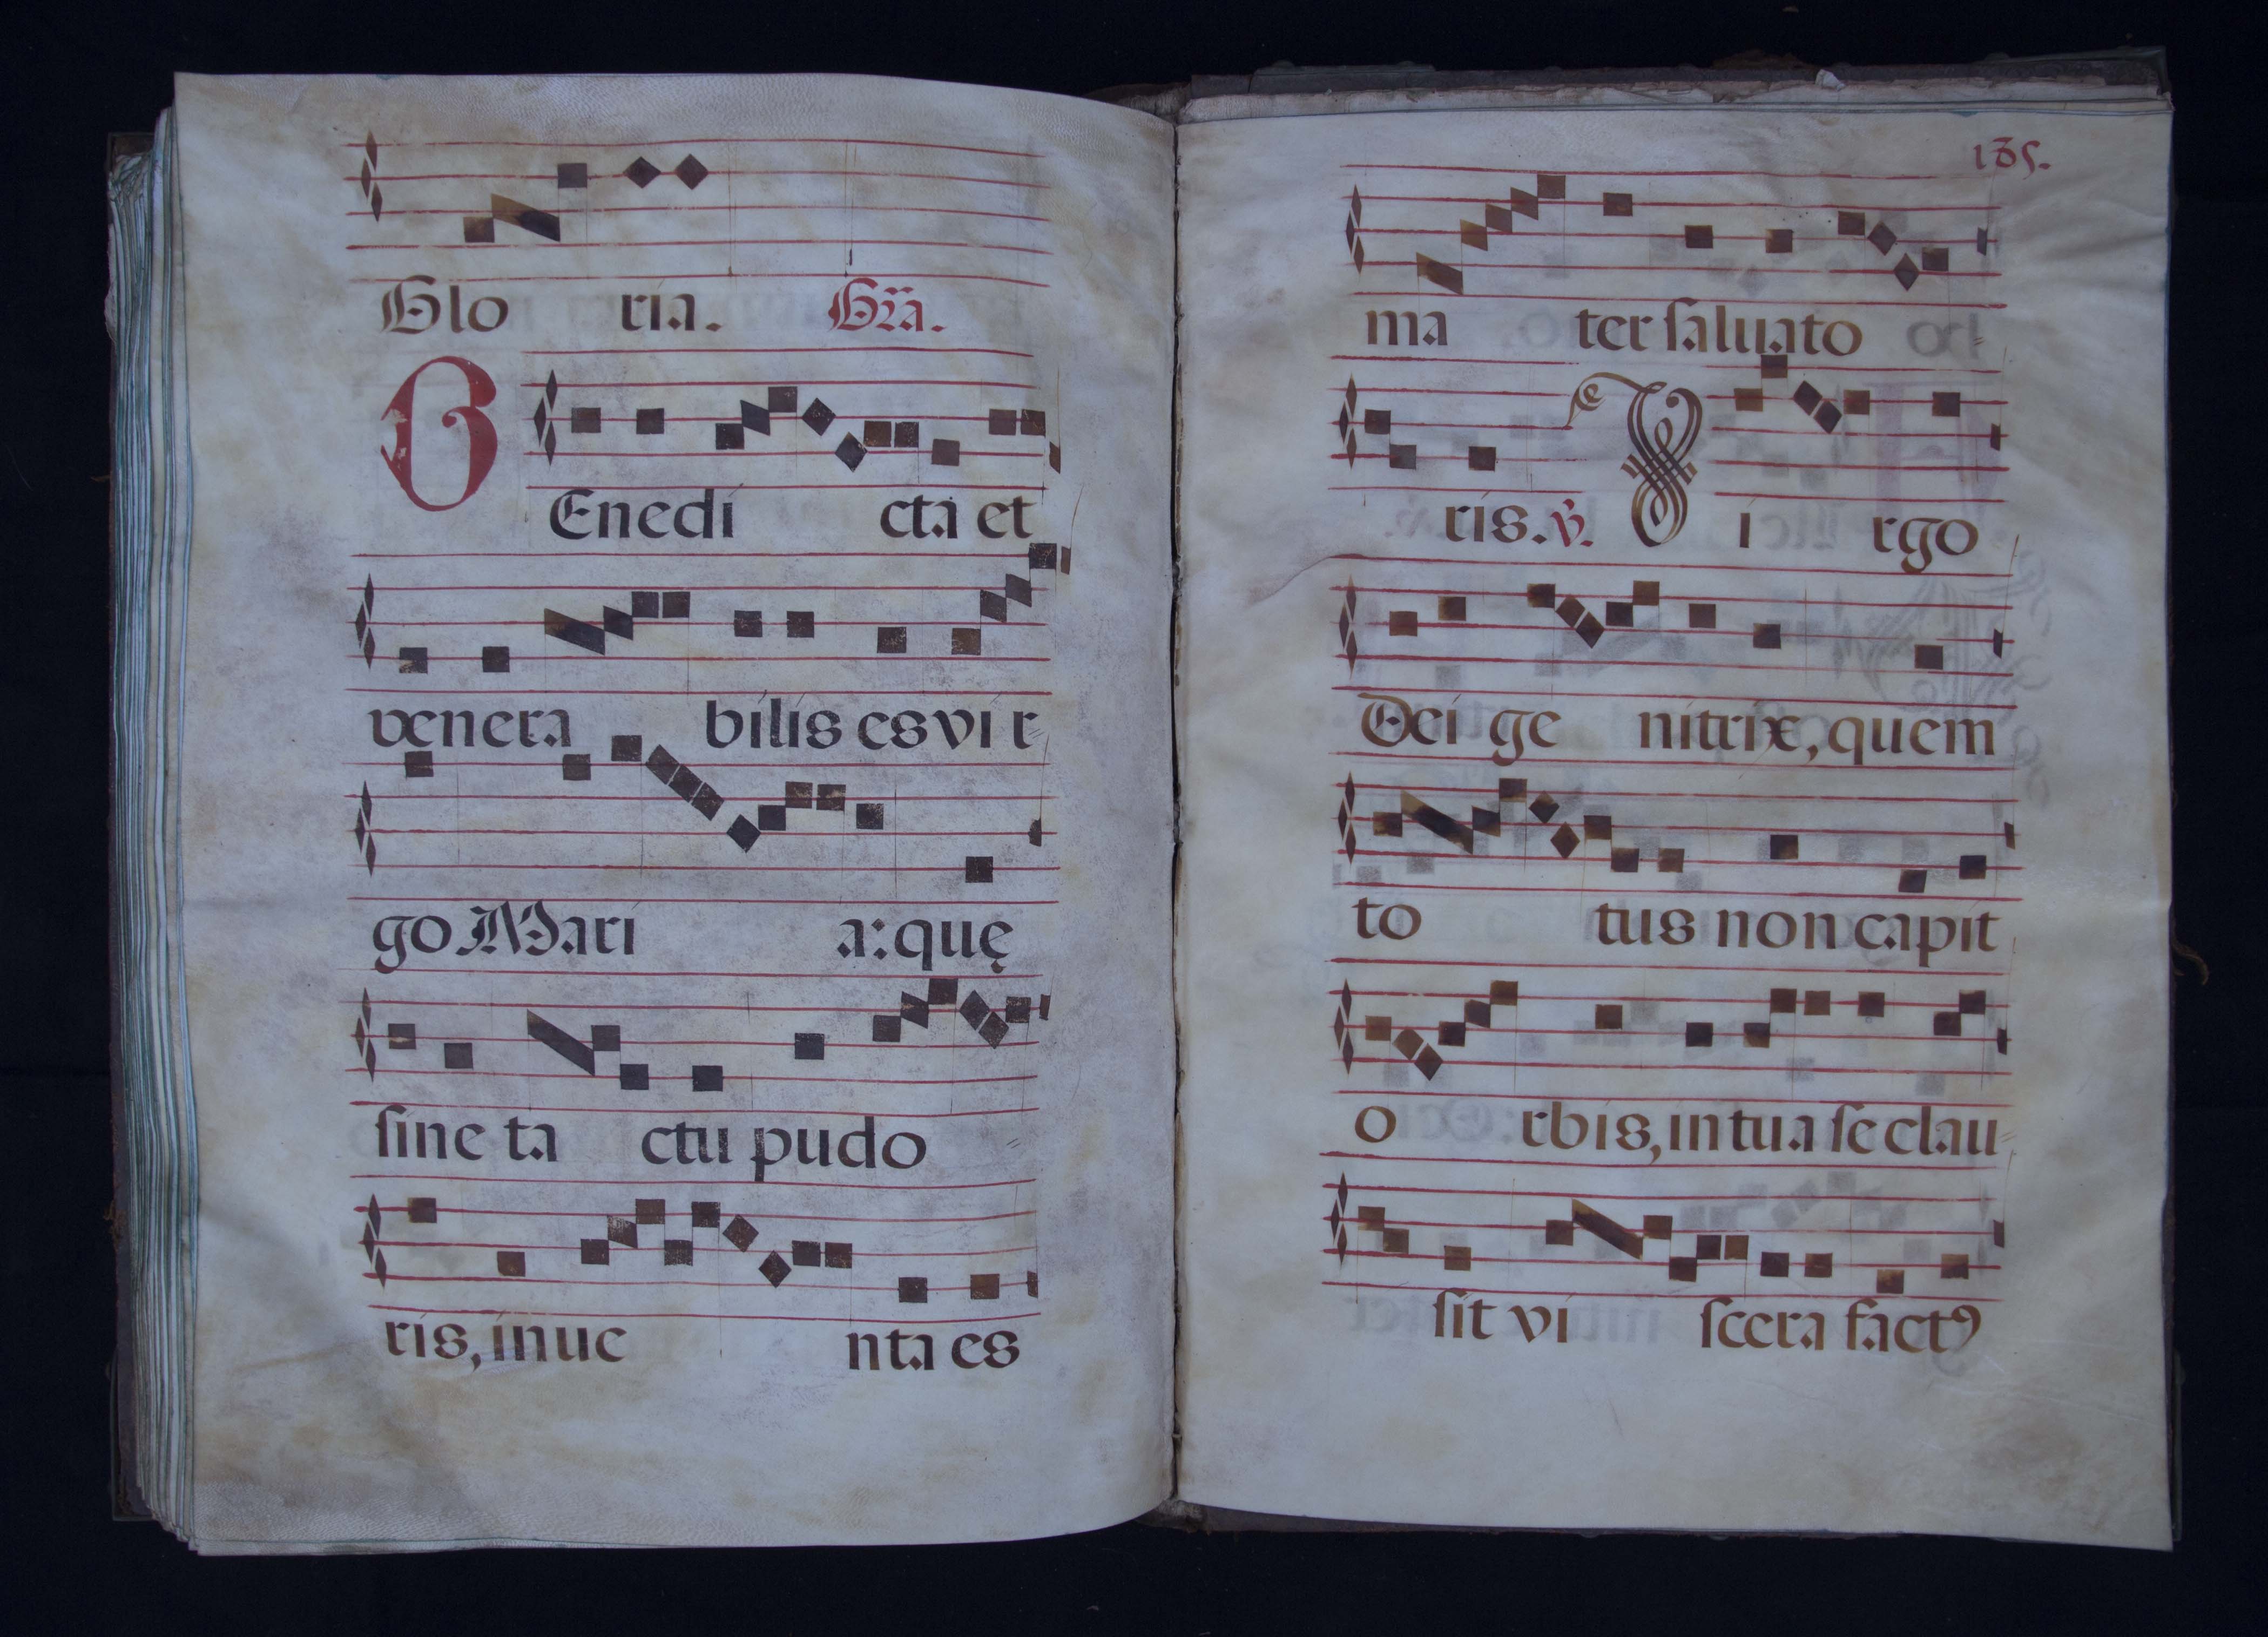 Glo ria. Gr̃a.
BEnedi cta et
venera bilis es vi r=
go Mari a: quę
sine ta ctu pudo =
ris, inue nta es
185.
ma ter saluato =
ris. ℣. Vi rgo
Dei ge nitrix, quem
to tus non capit
o rbis, in tua se clau=
sit vi scera factꝰ